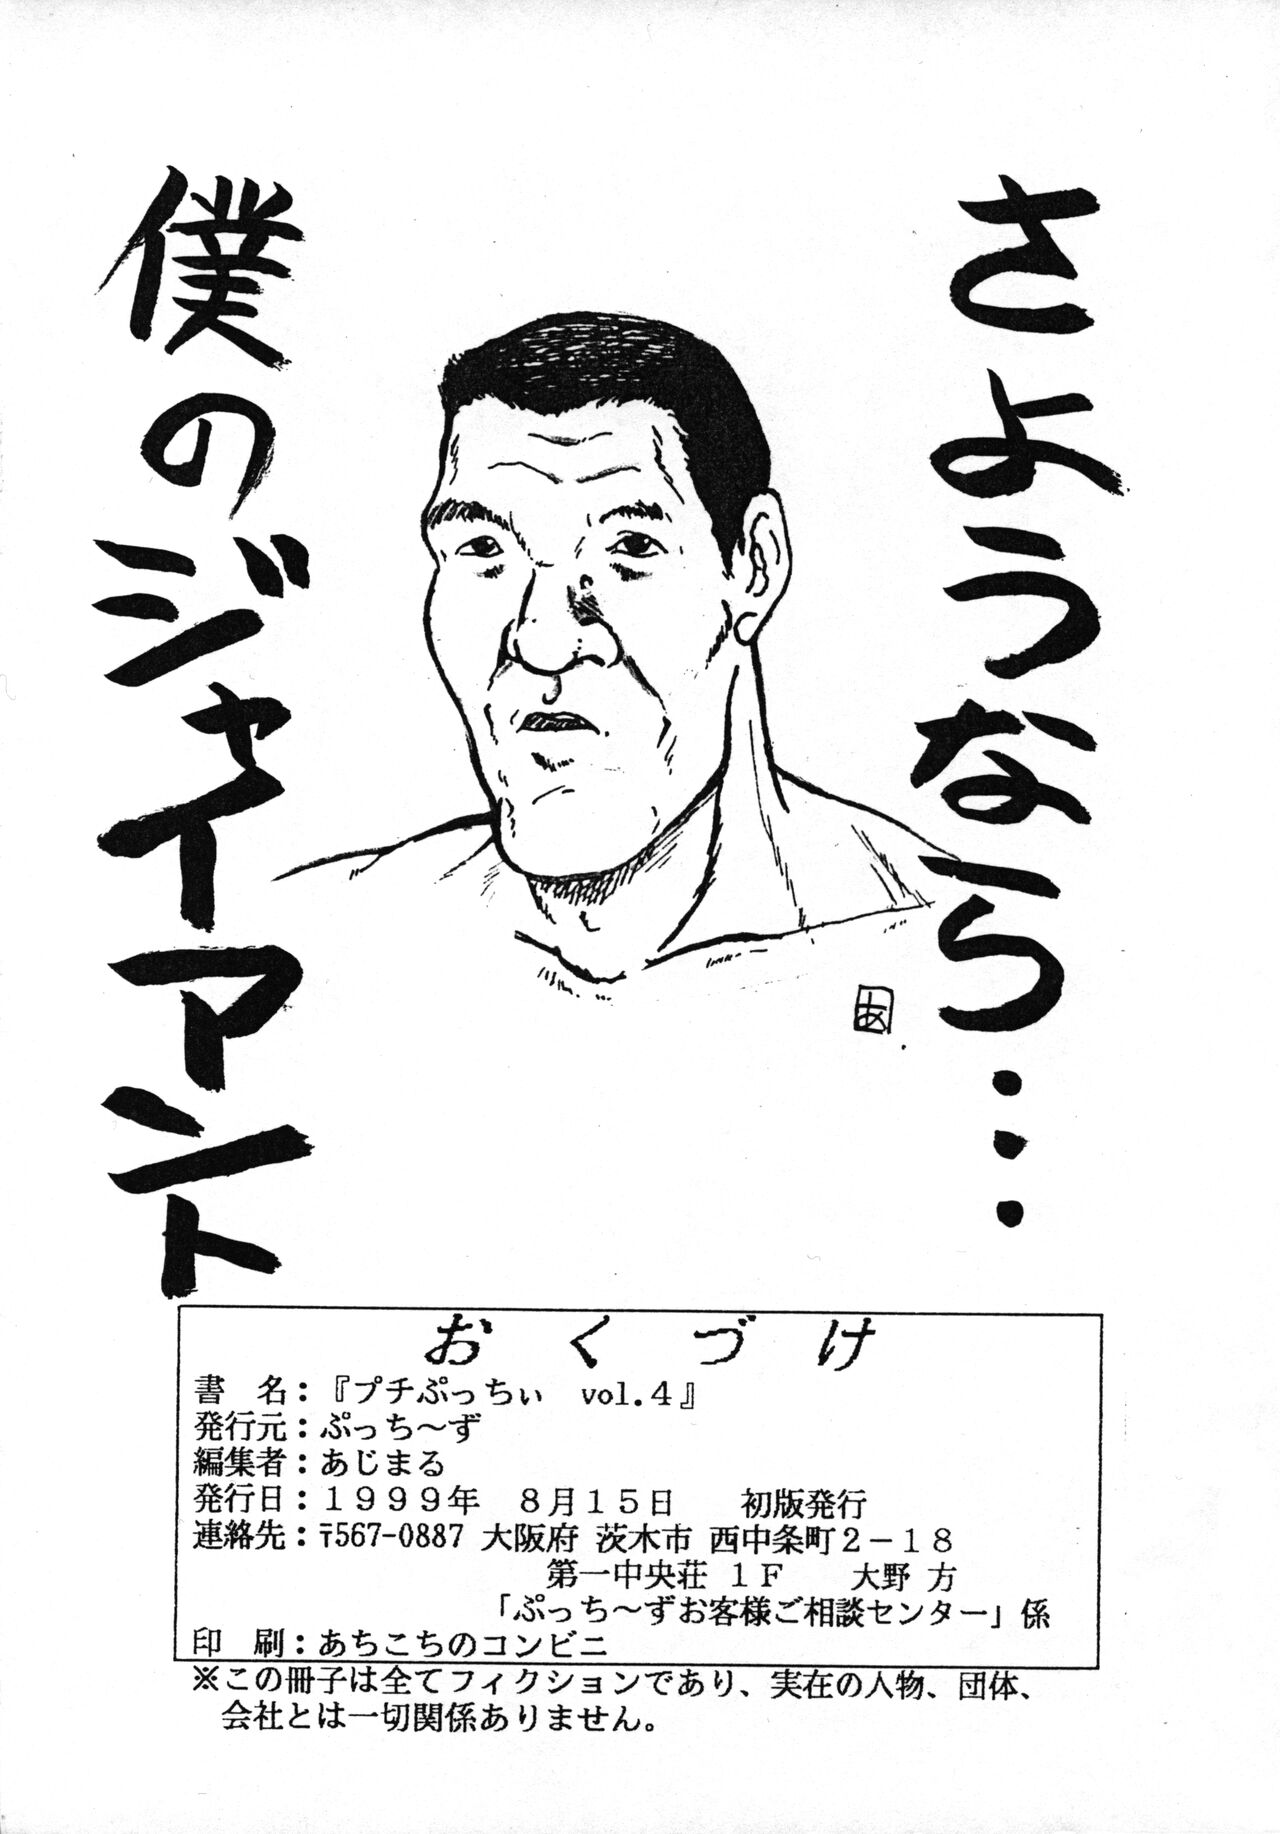 さようなら…
僕のジャイアント
あ
おくづけ
書　名：『プチぷっちぃ　vol.４』
発行元：ぷっち～ず
編集者：あじまる
発行日：１９９９年　８月１５日　　初版発行
連絡先：〒567-0887 大阪府 茨木市 西中条町２－１８
第一中央荘 １Ｆ　　大野 方
「ぷっち～ずお客様ご相談センター」係
印　刷：あちこちのコンビニ
※この冊子は全てフィクションであり、実在の人物、団体、
会社とは一切関係ありません。